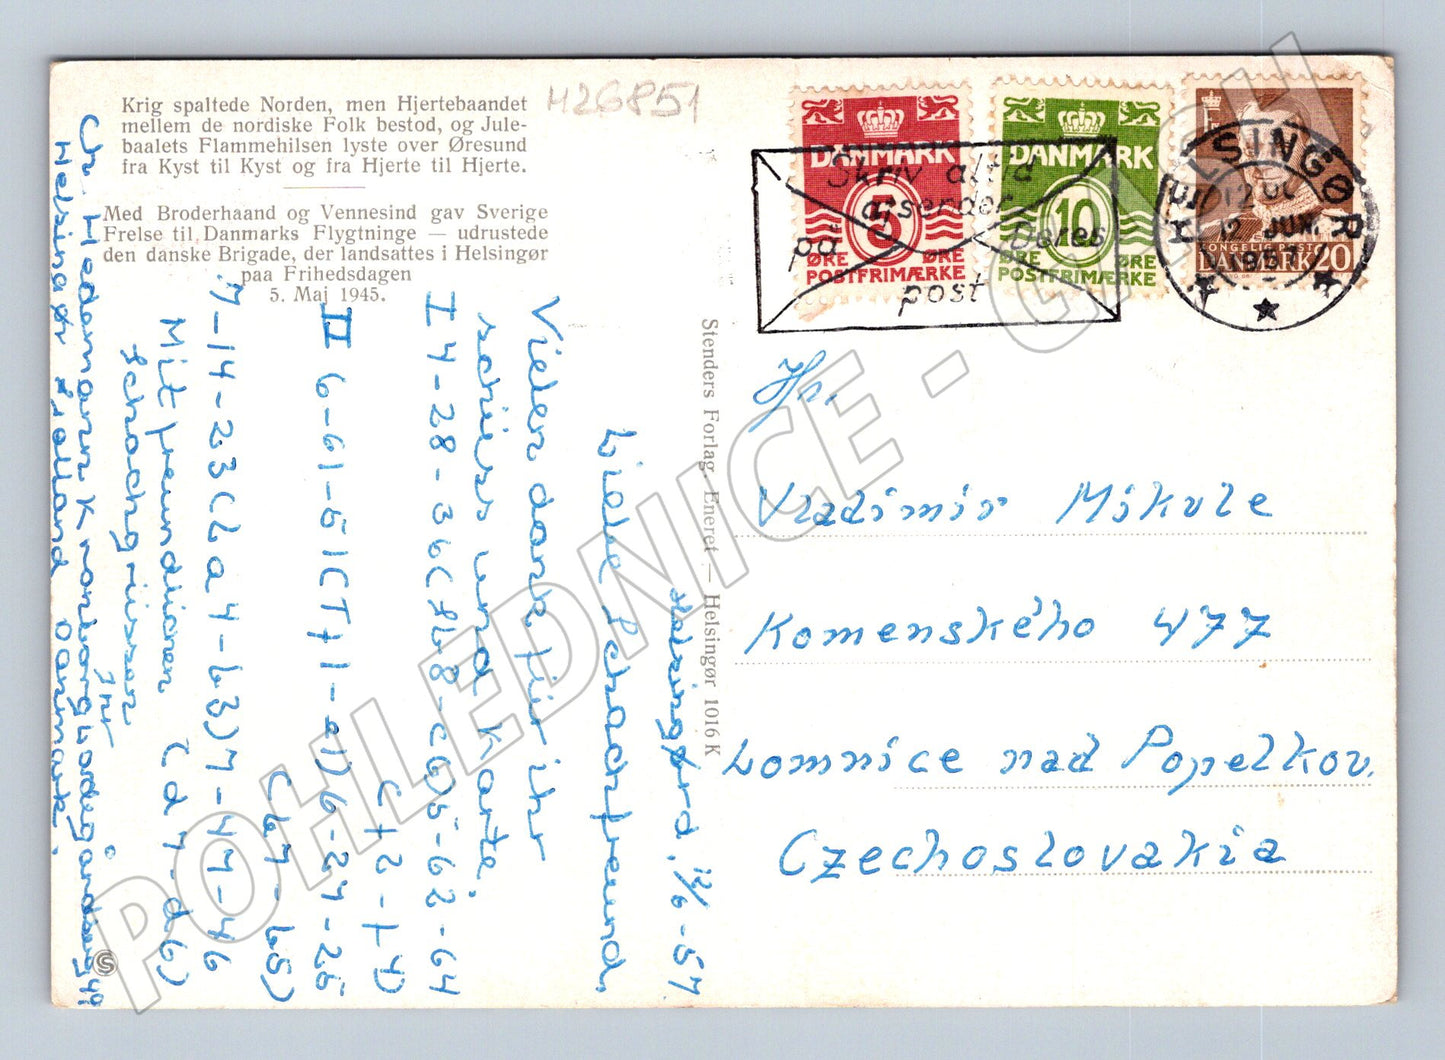 Krig spaltede Norden, men Hjertebaandet
mellem de nordiske Folk bestod, og Jule-
baalets Flammehilsen lyste over Øresund
fra Kyst til Kyst og fra Hjerte til Hjerte.
Med Broderhaand og Vennesind gav Sverige
Frelse til Danmarks Flygtninge — udrustede
den danske Brigade, der landsattes i Helsingør
paa Frihedsdagen
5. Maj 1945.
H26851
Helsingør d. 12/6-57
Liebe Schachfreund.
Vielen dank für ihr
schöne und Karte.
I 4-28-36 (Lb8-c6) 5-62-64
c+2-f4)
II 6-61-51 (Tf1-a1) 6-27-25
(b7-b5)
7-14-23 (La4-b3) 7-47-46
(d7-d6)
Mit freundlichen
Schachgrüssen
Chr. Hedemann
Helsingør Danmark.
Stenders Forlag. Eneret — Helsingør 1016 K
S
DANMARK
5
ØRE ØRE
POSTFRIMÆRKE
DANMARK
10
ØRE ØRE
POSTFRIMÆRKE
KONGELIG POST
DANMARK 20
Skriv altid
afsender
på Deres
post
HELSINGØR
12. JUN.
1957
Hr.
Vladimir Mikule
Komenského 477
Lomnice nad Popelkou.
Czechoslovakia
POHLEDNICE - CZECH